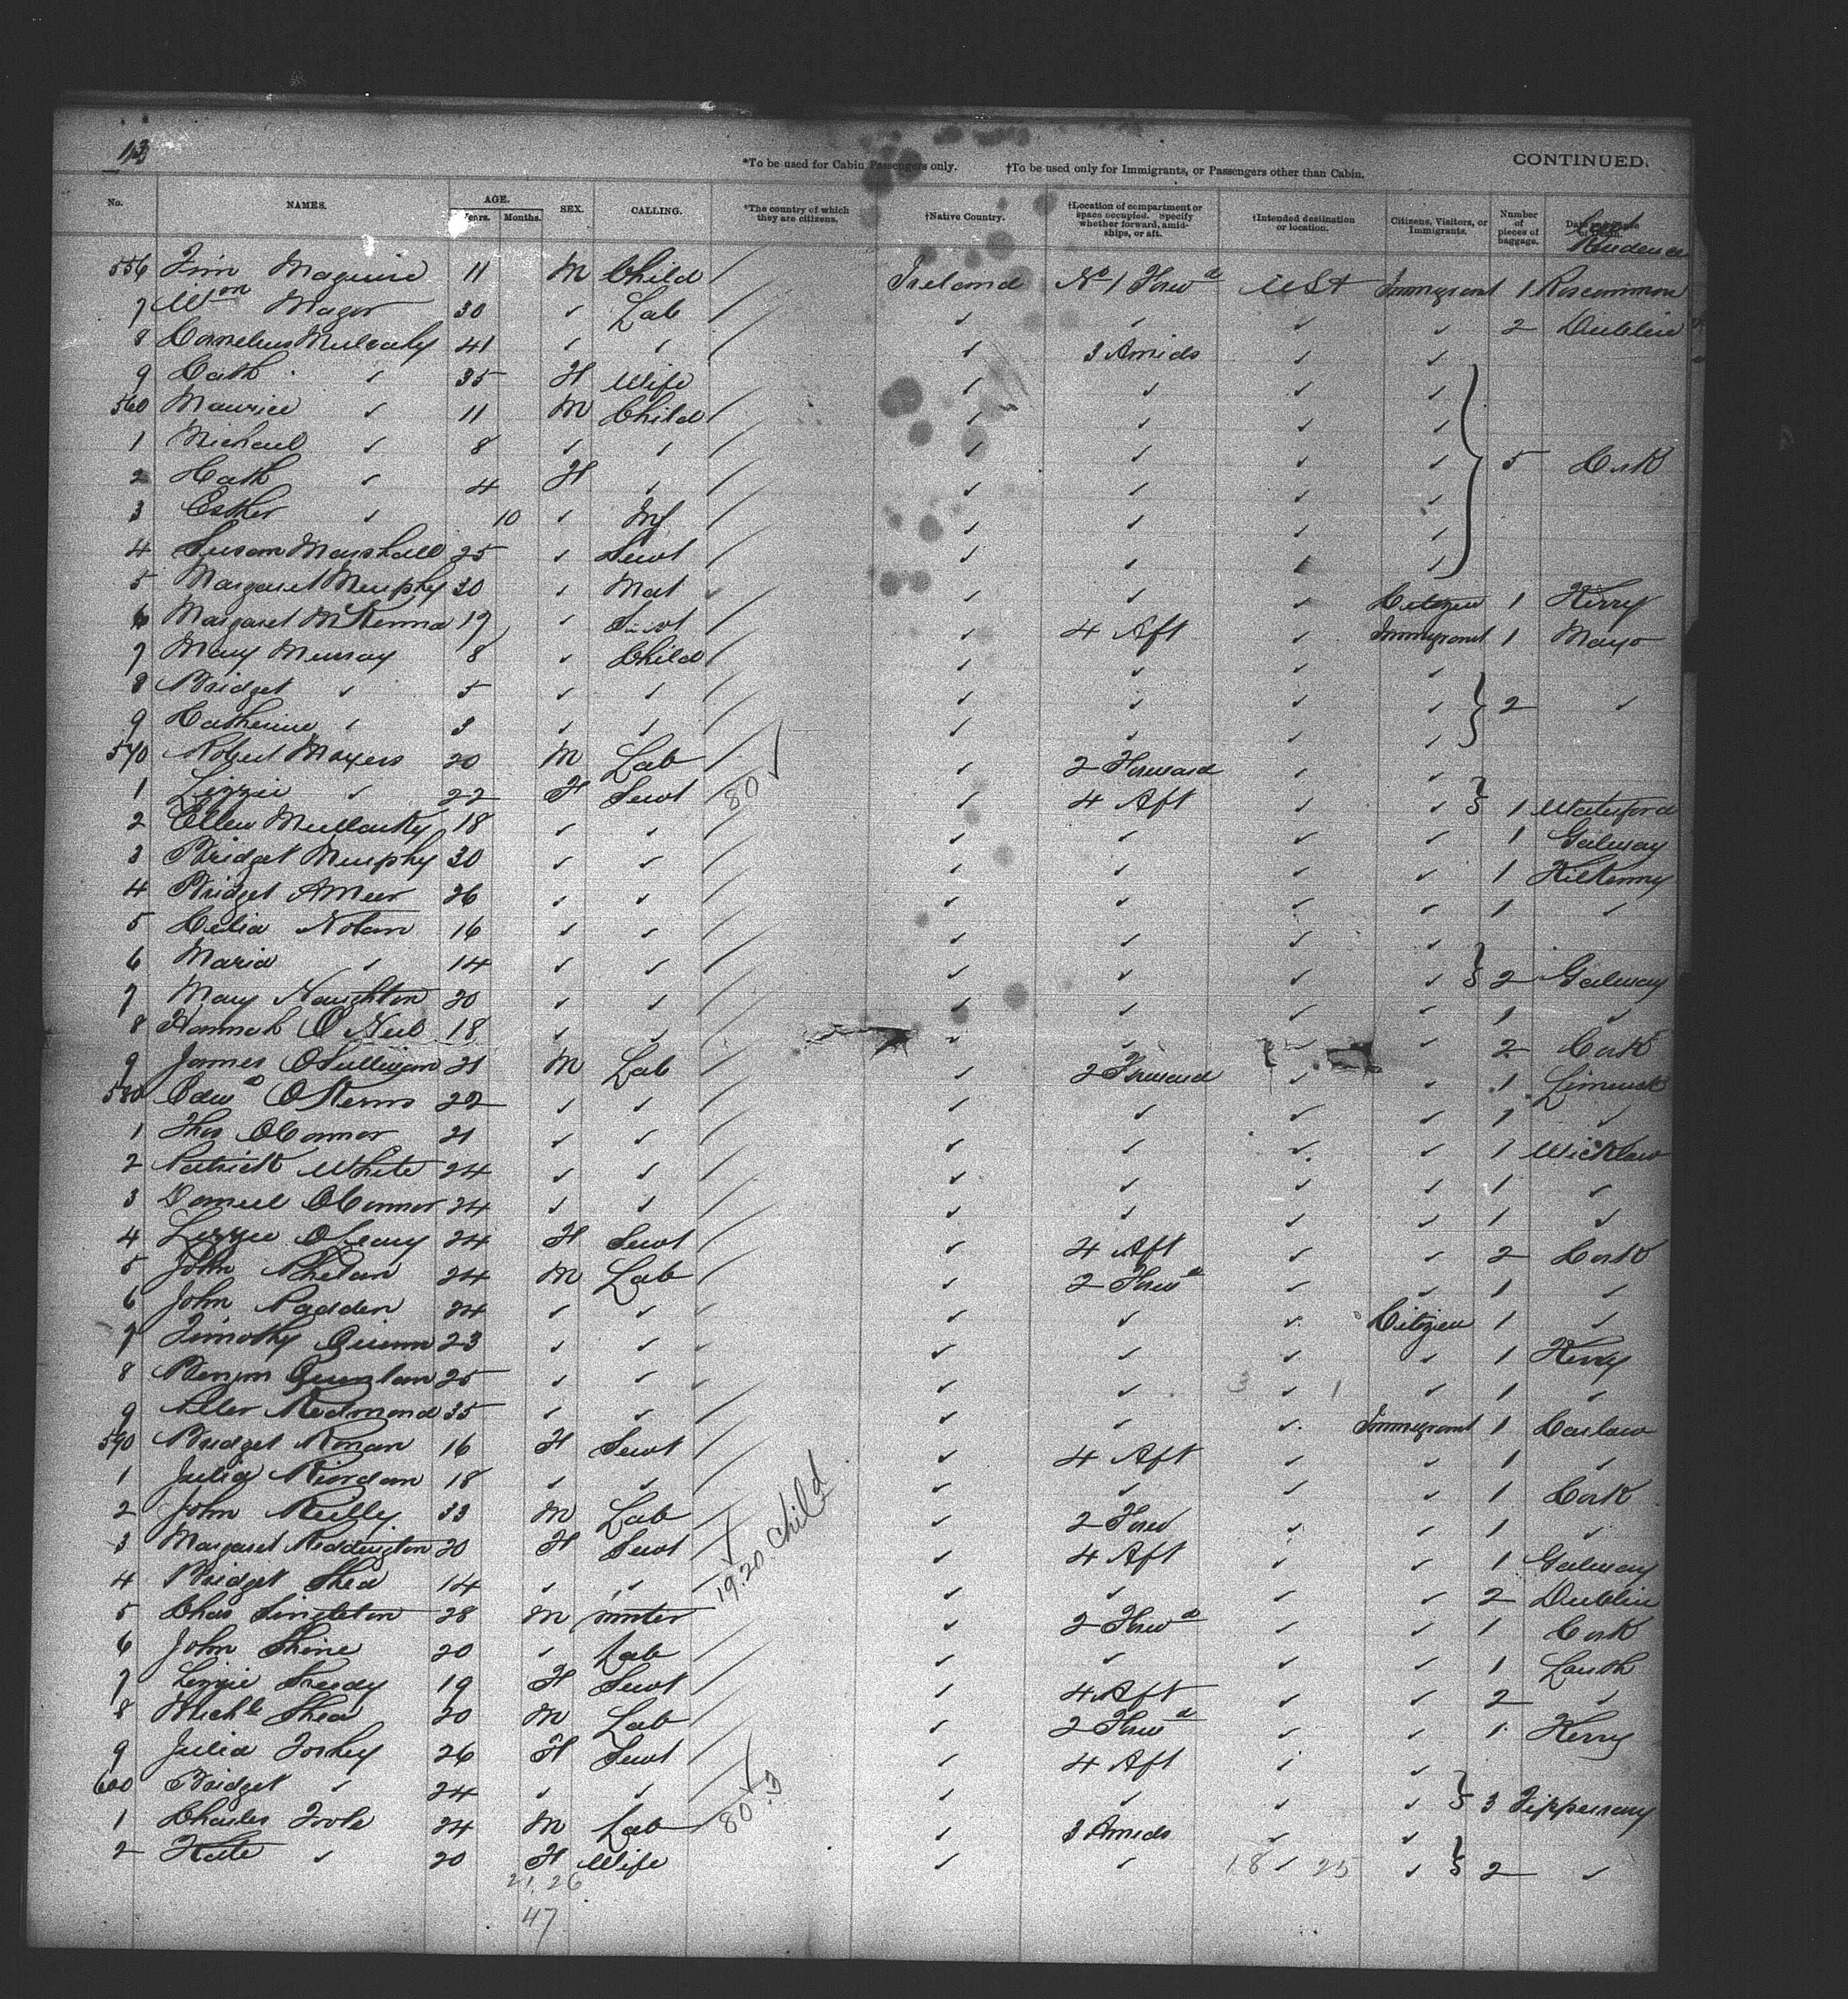 13
*To be used for Cabin Passengers only. †To be used only for Immigrants, or Passengers other than Cabin. CONTINUED.
No. NAMES. AGE. Years. Months. SEX. CALLING. *The country of which they are citizens. †Native Country. †Location of compartment or space occupied. Specify whether forward, amidships, or aft. †Intended destination or location. Citizens, Visitors, or Immigrants. Number of pieces of baggage. Residence
556 Tim Maguire 11 M Child Ireland No 1 Forwd USt Immigrant 1 Roscommon
7 Wm Magor 30 ✓ Lab ✓ ✓ ✓ ✓ 2 Dublin
8 Cornelius Mulcahy 41 ✓ ✓ ✓ 3 Amids ✓ ✓
9 Cath ✓ 35 F Wife ✓ ✓ ✓ ✓
560 Maurice ✓ 11 M Child ✓ ✓ ✓ ✓
1 Michael ✓ 8 ✓ ✓ ✓ ✓ ✓ ✓ 5 Cork
2 Cath ✓ 4 F ✓ ✓ ✓ ✓ ✓
3 Esther ✓ 10 ✓ Inf ✓ ✓ ✓ ✓
4 Susan Marshall 25 ✓ Servt ✓ ✓ ✓ ✓
5 Margaret Murphy 30 ✓ Mat ✓ ✓ ✓ Citizen 1 Kerry
6 Margaret McKenna 19 ✓ Servt ✓ 4 Aft ✓ Immigrant 1 Mayo
7 Mary Murray 8 ✓ Child ✓ ✓ ✓ ✓
8 Bridget ✓ 5 ✓ ✓ ✓ ✓ ✓ ✓ 2 ✓
9 Catherine ✓ 3 ✓ ✓ ✓ ✓ ✓ ✓
570 Robert Mayers 20 M Lab ✓ 2 Forward ✓ ✓
1 Lizzie ✓ 22 F Servt 80 ✓ 4 Aft ✓ ✓ 1 Waterford
2 Ellen Mullarky 18 ✓ ✓ ✓ ✓ ✓ ✓ 1 Galway
3 Bridget Murphy 30 ✓ ✓ ✓ ✓ ✓ ✓ 1 Kilkenny
4 Bridget 26 ✓ ✓ ✓ ✓ ✓ ✓ 1 ✓
5 Celia Nolan 16 ✓ ✓ ✓ ✓ ✓ ✓
6 Maria ✓ 14 ✓ ✓ ✓ ✓ ✓ ✓ 2 Galway
7 Mary Naughton 20 ✓ ✓ ✓ ✓ ✓ ✓ 1 ✓
8 Hannah O'Neil 18 ✓ ✓ ✓ ✓ ✓ ✓ 2 Cork
9 James O'Sullivan 21 M Lab ✓ 2 Forward ✓ ✓ 1 Limerick
580 Edwd 22 ✓ ✓ ✓ ✓ ✓ ✓ 1 ✓
1 Thos O'Connor 21 ✓ ✓ ✓ ✓ ✓ ✓ 1 Wicklow
2 Patrick White 24 ✓ ✓ ✓ ✓ ✓ ✓ 1 ✓
3 Daniel O'Connor 24 ✓ ✓ ✓ ✓ ✓ ✓ 1 ✓
4 Lizzie O'Leary 24 F Servt ✓ 4 Aft ✓ ✓ 2 Cork
5 John Phelan 24 M Lab ✓ 2 Forwd ✓ ✓ 1 ✓
6 John Padden 24 ✓ ✓ ✓ ✓ ✓ Citizen 1 ✓
7 Timothy Quinn 23 ✓ ✓ ✓ ✓ ✓ ✓ 1 Kerry
8 Benjm Quinlan 25 ✓ ✓ ✓ ✓ 3 ✓ 1 ✓ 1 ✓
9 Redmond 35 ✓ ✓ ✓ ✓ ✓ Immigrant 1 Carlow
590 Bridget Ronan 16 F Servt ✓ 4 Aft ✓ ✓ 1 ✓
1 Julia Riordan 18 ✓ ✓ ✓ ✓ ✓ ✓ 1 Cork
2 John Reilly 33 M Lab ✓ 2 Forw ✓ ✓ 1 ✓
3 Margaret Reddington 20 F Servt 19.20 child ✓ 4 Aft ✓ ✓ 1 Galway
4 Bridget Shea 14 ✓ ✓ ✓ ✓ ✓ ✓ 2 Dublin
5 Chas Singleton 28 M ✓ 2 Forwd ✓ ✓ 1 Cork
6 John Shine 20 ✓ Lab ✓ ✓ ✓ ✓ 1 Louth
7 Lizzie 19 F Servt ✓ 4 Aft ✓ ✓ 2 ✓
8 Michl Shea 20 M Lab ✓ 2 Forwd ✓ ✓ 1 Kerry
9 Julia 26 F Servt ✓ 4 Aft ✓ ✓
600 Bridget ✓ 24 ✓ ✓ ✓ ✓ ✓ ✓ 3 Tipperary
1 Charles Toole 24 M Lab 80.3 ✓ 3 Amids ✓ ✓
2 Kate ✓ 20 F Wife ✓ ✓ 18 ✓ 25 ✓ 2 ✓
21.26
47